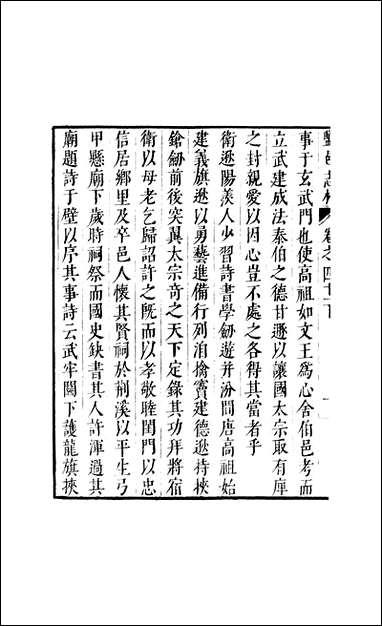 卷之四十下
事于玄武門也使高祖如文王爲心舍伯邑考而
立武建成法泰伯之德甘遯以讓國太宗取有庳
之封親愛以因心豈不處之各得其當者乎
衛逖陽羨人少習詩書學劒遊并汾間唐高祖始
建義旗逖以勇藝進備行列洎擒竇建德逖持挾
鎗劒前後突翼太宗奇之天下定錄其功拜將宿
衛以母老乞歸詔許之既而以孝敬睦閨門以忠
信居鄉里及卒邑人懷其賢祠於荆溪以平生弓
甲懸廟下歲時祠祭而國史缺書其人許渾過其
廟題詩于壁以序其事詩云武牢關下護龍旗挾